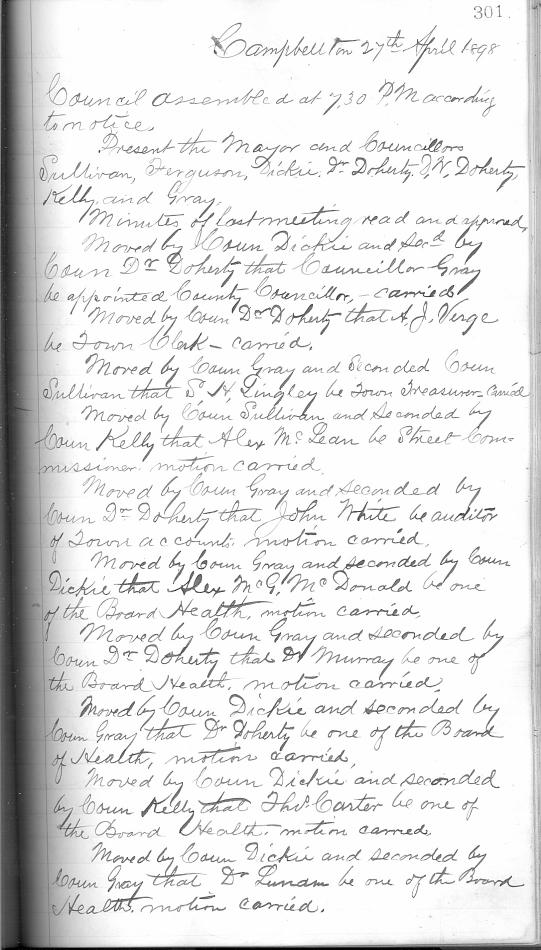 301.
Campbellton 27th April 1898
Council assembled at 7,30 P.M according
to notice.
Present the Mayor and Councillors
Sullivan, Ferguson, Dickie. Dr Doherty. D.W. Doherty,
Kelly, and Gray.
Minutes of last meeting read and approved,
Moved by Coun Dickie and Secd by
Coun Dr Doherty that Councillor Gray
be appointed County Councillor, - carried
Moved by Coun Dr Doherty that A. J. Verge
be Town Clerk - carried.
Moved by Coun Gray and Seconded Coun
Sullivan that S. H. Lingley be Town Treasurer - carried
Moved by Coun Sullivan and Seconded by
Coun Kelly that Alex Mc Lean be Street Com=
missioner. motion carried.
Moved by Coun Gray and seconded by
Coun Dr Doherty that John White be auditor
of Town accounts. motion carried.
Moved by Coun Gray and seconded by Coun
Dickie that Alex McG. McDonald be one
of the Board Health, motion carried,
Moved by Coun Gray and seconded by
Coun Dr Doherty that Dr Murray be one of
the Board Health. motion carried,
Moved by Coun Dickie and seconded by
Coun Gray that Dr Doherty be one of the Board
of Health, motion carried,
Moved by Coun Dickie and seconded
by Coun Kelly that Thos. Carter be one of
the Board Health. motion carried
Moved by Coun Dickie and seconded by
Coun Gray that Dr Lunam be one of the Board
Health. motion carried.